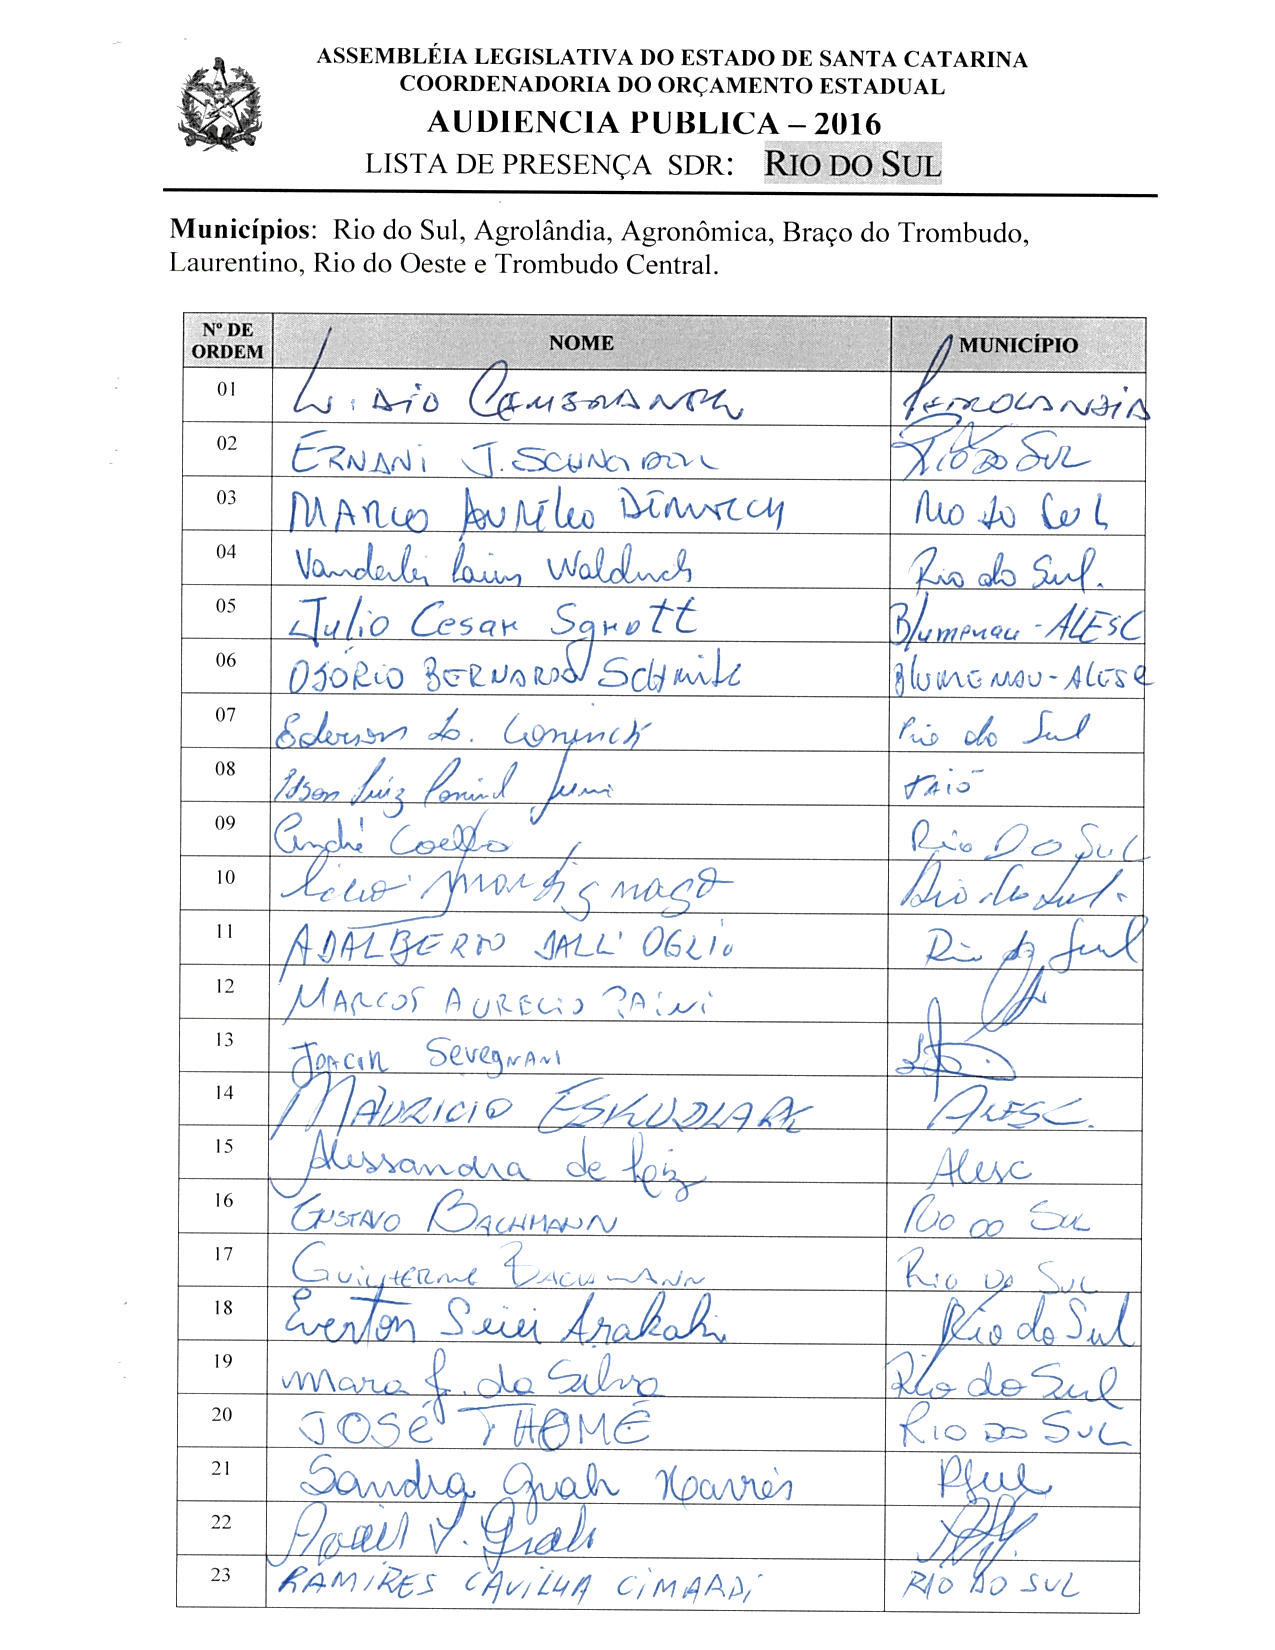 ASSEMBLÉIA LEGISLATIVA DO ESTADO DE SANTA CATARINA
COORDENADORIA DO ORÇAMENTO ESTADUAL
AUDIENCIA PUBLICA – 2016
LISTA DE PRESENÇA SDR: RIO DO SUL
Municípios: Rio do Sul, Agrolândia, Agronômica, Braço do Trombudo,
Laurentino, Rio do Oeste e Trombudo Central.
Nº DE ORDEM NOME MUNICÍPIO
01 PETROLANDIA
02 ERNANI J. RIO DO SUL
03 MARCO AURÉLIO Rio do Sul
04 Vanderlei Rio do Sul.
05 Julio Cesar Sgrott Blumenau - ALESC
06 OSÓRIO BERNARDO Schmitz BLUMENAU - ALESC
07 Ederson Rio do Sul
08 Luiz TAIÓ
09 André Coelho Rio DO SUL
10 Rio do Sul.
11 ADALBERTO DALL' OGLIO Rio do Sul
12 MARCOS AURELIO
13 JOACIR SEVEGNANI
14 MAURICIO ESKUDLARK ALESC.
15 Alessandra de Alesc
16 GUSTAVO BACHMANN RIO DO SUL
17 GUILHERME BACHMANN RIO DO SUL
18 Everton Seiei Arakaki Rio do Sul
19 Mara da Silva Rio do Sul
20 JOSÉ THOMÉ RIO DO SUL
21 Sandra RSul
22
23 RAMIRES CAVILHA CIMARDI RIO DO SUL